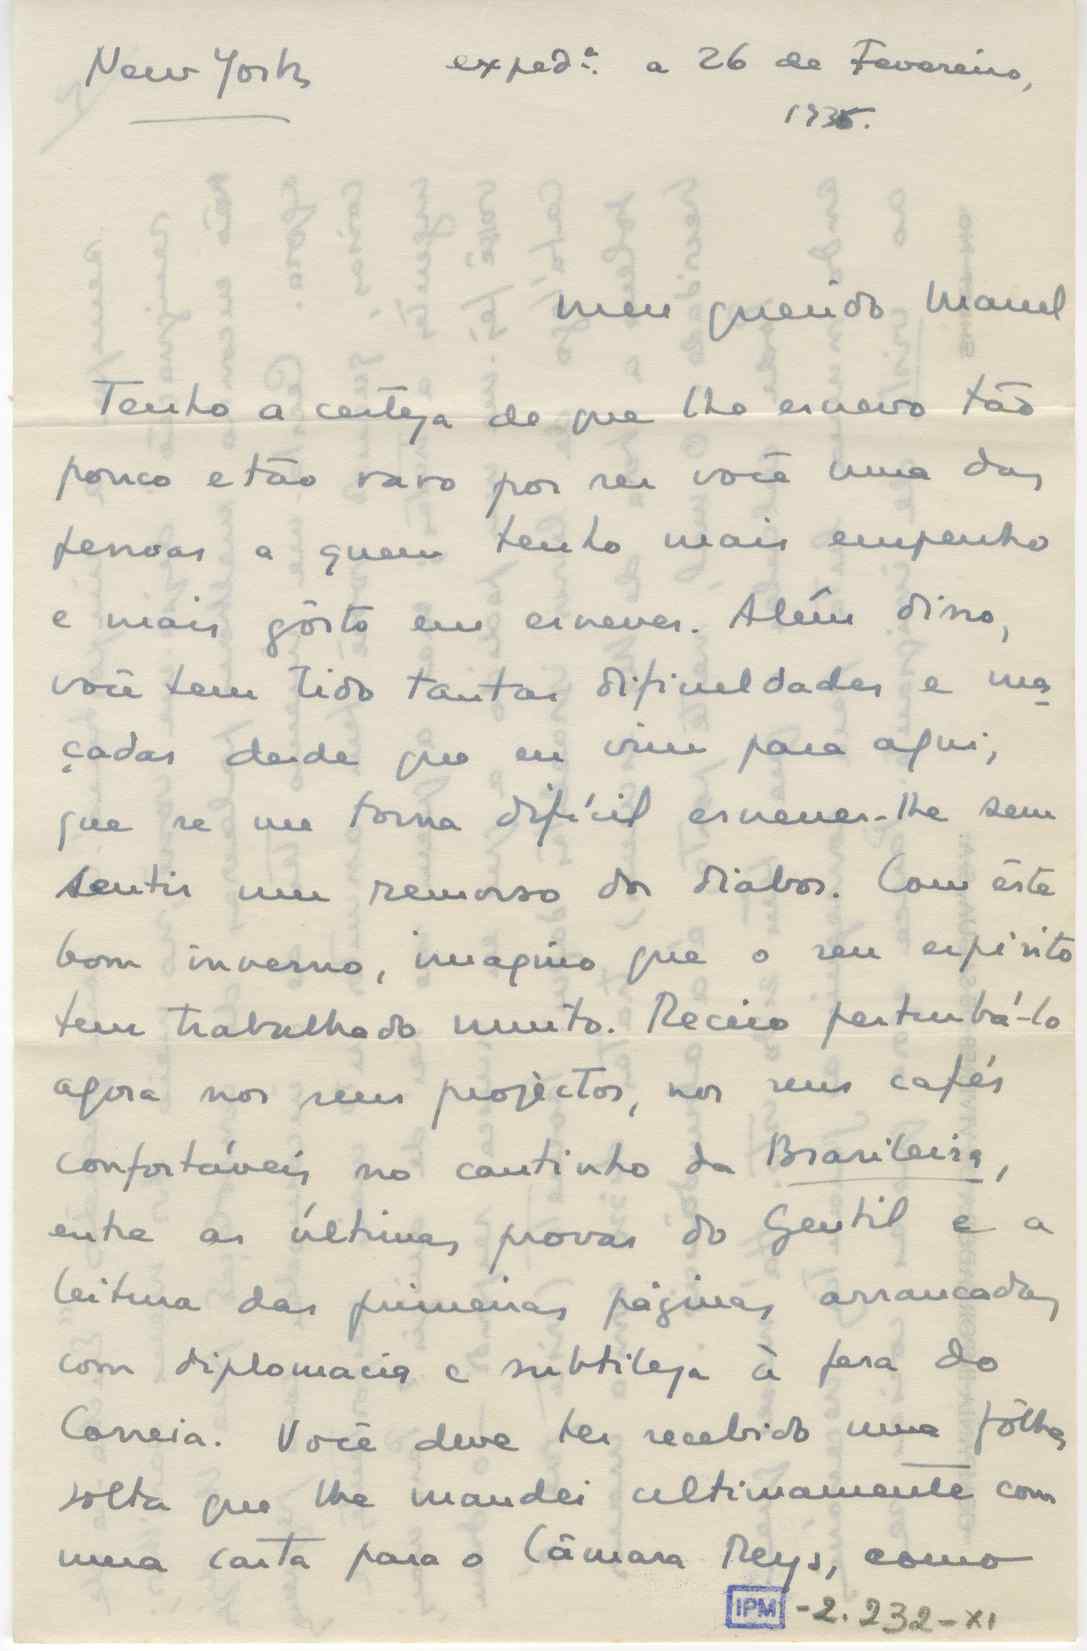 New York expedª. a 26 de Fevereiro,
1935.
Meu querido Manuel
Tenho a certeza de que lhe escrevo tão
pouco e tão raro por ser você uma das
pessoas a quem tenho mais empenho
e mais gôsto em escrever. Além disso,
você tem tido tantas dificuldades e ma
çadas desde que eu vim para aqui,
que se me torna difícil escrever-lhe sem
sentir um remorso dos diabos. Com êste
bom inverno, imagino que o seu espírito
tem trabalhado muito. Receio perturbá-lo
agora nos seus projectos, nos seus cafés
confortáveis no cantinho da Brasileira,
entre as últimas provas do Gentil e a
leitura das primeiras páginas arrancadas
com diplomacia e subtileza à fera do
Correia. Você deve ter recebido uma fôlha
solta que lhe mandei ultimamente com
uma carta para o Câmara Reys, como
IPM -2.232-XI